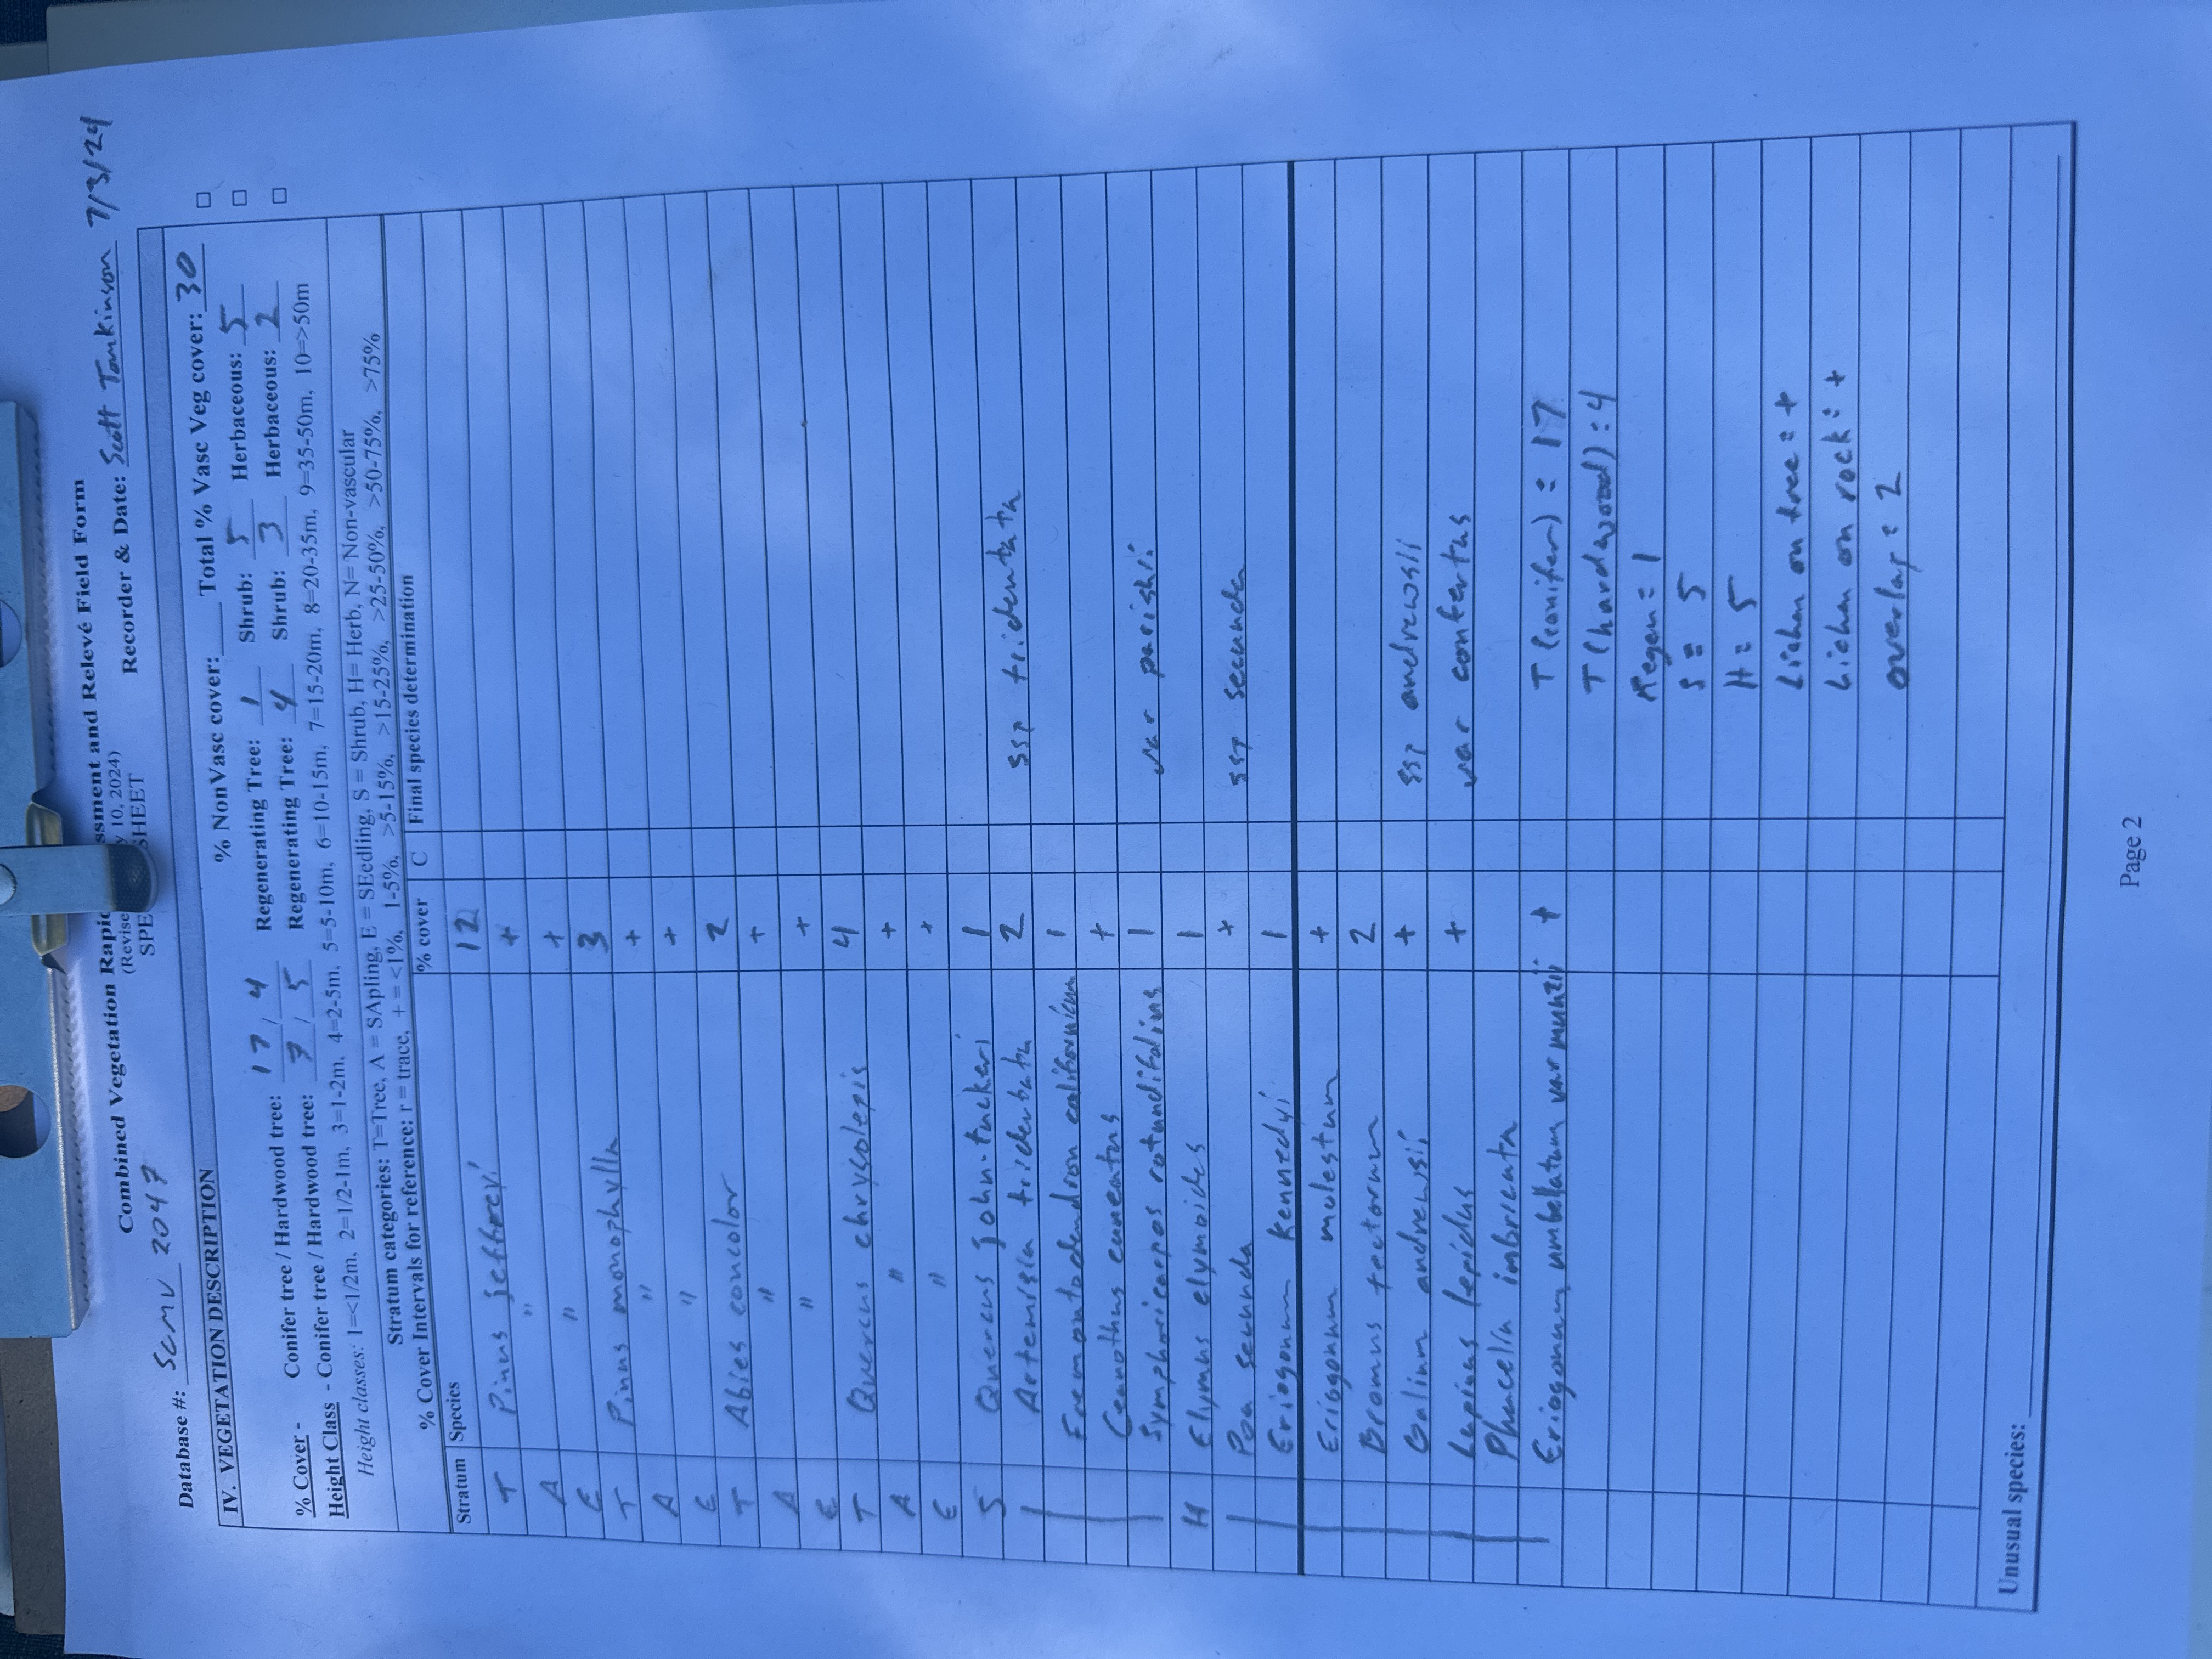 Combined Vegetation Rapi ssment and Relevé Field Form
(Revise y 10, 2024)
SPE SHEET
Database #: SCMV 2047 Recorder & Date: Scott Tomkinson 7/3/24
IV. VEGETATION DESCRIPTION
% NonVasc cover: Total % Vasc Veg cover: 30
% Cover - Conifer tree / Hardwood tree: 17 / 4 Regenerating Tree: 1 Shrub: 5 Herbaceous: 5
Height Class - Conifer tree / Hardwood tree: 7 / 5 Regenerating Tree: 4 Shrub: 3 Herbaceous: 2
Height classes: 1=<1/2m, 2=1/2-1m, 3=1-2m, 4=2-5m, 5=5-10m, 6=10-15m, 7=15-20m, 8=20-35m, 9=35-50m, 10=>50m
Stratum categories: T=Tree, A = SApling, E = SEedling, S = Shrub, H= Herb, N= Non-vascular
% Cover Intervals for reference: r = trace, + = <1%, 1-5%, >5-15%, >15-25%, >25-50%, >50-75%, >75%
Stratum Species % cover C Final species determination
T Pinus jeffreyi 12
A " +
E " +
T Pinus monophylla 3
A " +
E " +
T Abies concolor 2
A " +
E " +
T Quercus chrysolepis 4
A " +
E " +
S Quercus john-tuckeri 1
Artemisia tridentata 2 ssp tridentata
Fremontodendron californicum 1
Ceanothus cuneatus +
Symphoricarpos rotundifolius 1 var parishii
H Elymus elymoides 1
Poa secunda + ssp secunda
Eriogonum kennedyi 1
Eriogonum molestum +
Bromus tectorum 2
Galium andrewsii + ssp andrewsii
Lupinus lepidus + var confertus
Phacelia imbricata
Eriogonum umbellatum var munzii + T(conifer) = 17
T(hardwood) = 4
Regen = 1
S = 5
H = 5
Lichen on tree = +
Lichen on rock = +
overlap = 2
Unusual species:
Page 2